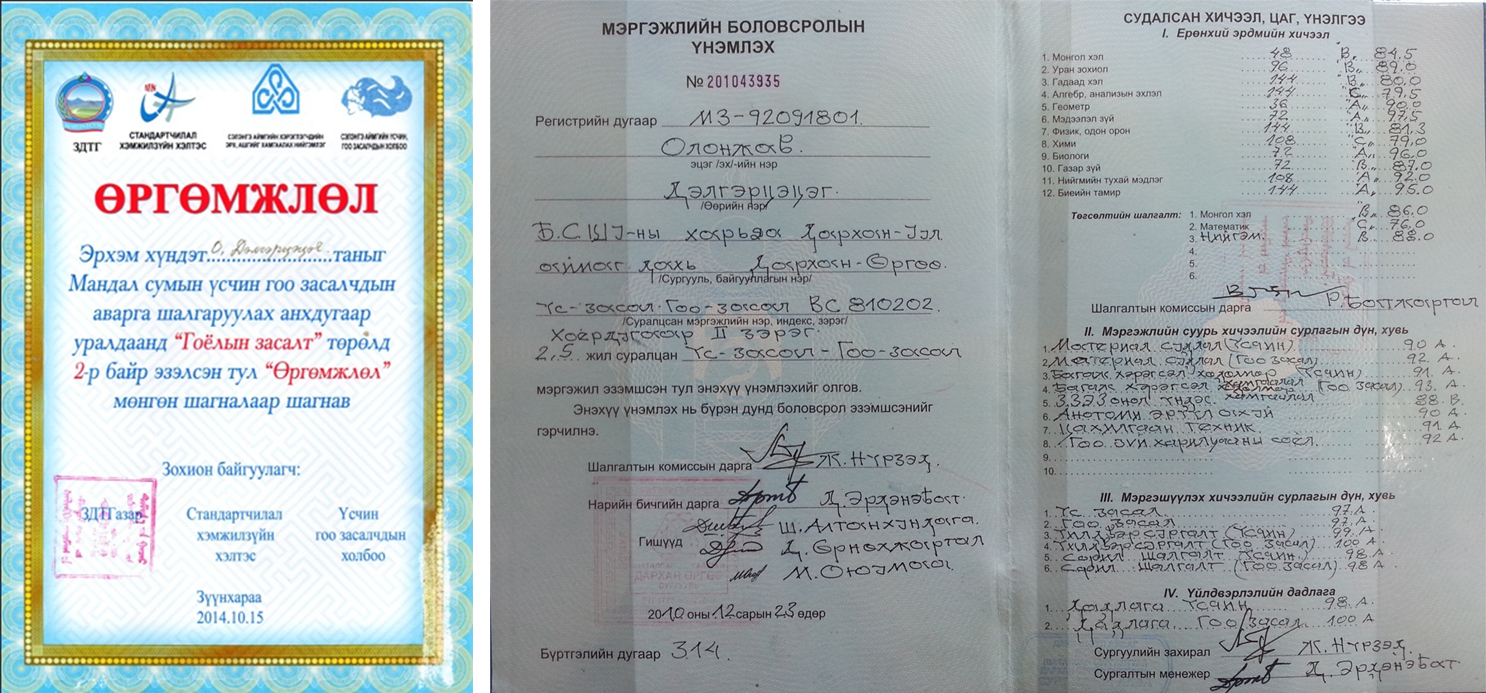 ЗДТГ
СТАНДАРТЧИЛАЛ
ХЭМЖИЛЗҮЙН ХЭЛТЭС
СЭЛЭНГЭ АЙМГИЙН ХЭРЭГЛЭГЧДИЙН
ЭРХ, АШГИЙГ ХАМГААЛАХ НИЙГЭМЛЭГ
СЭЛЭНГЭ АЙМГИЙН ҮСЧИН,
ГОО ЗАСАЛЧДЫН ХОЛБОО
ӨРГӨМЖЛӨЛ
Эрхэм хүндэт О. Дэлгэрцэцэг таныг
Мандал сумын үсчин гоо засалчдын
аварга шалгаруулах анхдугаар
уралдаанд “Гоёлын засалт” төрөлд
2-р байр эзэлсэн тул “Өргөмжлөл”
мөнгөн шагналаар шагнав
Зохион байгуулагч:
ЗДТГазар
Стандартчилал
хэмжилзүйн
хэлтэс
Үсчин
гоо засалчдын
холбоо
Зүүнхараа
2014.10.15
МЭРГЭЖЛИЙН БОЛОВСРОЛЫН
ҮНЭМЛЭХ
№ 201043935
Регистрийн дугаар МЗ-92091801.
Олонжав.
эцэг /эх/-ийн нэр
Дэлгэрцэцэг.
/Өөрийн нэр/
Б.С.ШУ-ны харьяа Дархан-Уул
аймаг дахь Дархан-Өргөө.
/Сургууль, байгууллагын нэр/
Үс-засал-Гоо-засал ВС 810202.
/Суралцсан мэргэжлийн нэр, индекс, зэрэг/
Хоёрдугаар II зэрэг.
2,5 жил суралцан Үс-засал-Гоо-засал
мэргэжил эзэмшсэн тул энэхүү үнэмлэхийг олгов.
Энэхүү үнэмлэх нь бүрэн дунд боловсрол эзэмшсэнийг
гэрчилнэ.
Шалгалтын комиссын дарга Ж.Нүрзэд.
Нарийн бичгийн дарга Д.Эрдэнэбат.
Гишүүд Ш.Алтанхундага.
Д.Өрнөхжаргал
М.Оюумаа.
2010 оны 12 сарын 23 өдөр
Бүртгэлийн дугаар 314.
СУДАЛСАН ХИЧЭЭЛ, ЦАГ, ҮНЭЛГЭЭ
I. Ерөнхий эрдмийн хичээл
1. Монгол хэл 48 "В„ 84.5
2. Уран зохиол 96 "В„ 89.0
3. Гадаад хэл 144 "В„ 80.0
4. Алгебр, анализын эхлэл 144 "С„ 79.5
5. Геометр 36 "А„ 90.0
6. Мэдээлэл зүй 72 "А„ 97.5
7. Физик, одон орон 144 "В„ 81.3
8. Хими 108 "С„ 79.0
9. Биологи 72 "А„ 96.0
10. Газар зүй 72 "В„ 87.0
11. Нийгмийн тухай мэдлэг 108 "А„ 92.0
12. Биеийн тамир 144 "А„ 95.0
Төгсөлтийн шалгалт: 1. Монгол хэл "В„ 86.0
2. Математик "С„ 76.0
3. Нийгэм "В„ 88.0
4.
5.
6.
Шалгалтын комиссын дарга Р.Батжаргал
II. Мэргэжлийн суурь хичээлийн сурлагын дүн, хувь
1. Материал судлал (Үсчин) 90 А.
2. Материал судлал (Гоо засал) 92 А.
3. Багаж хэрэгсэл (Үсчин) 91. А.
4. Багаж хэрэгсэл (Гоо засал) 93. А.
5. 88. В.
6. Анатоми 90 А.
7. Цахилгаан техник. 91 А
8. Гоо зүй харилцааны соёл. 92 А.
9.
10.
III. Мэргэшүүлэх хичээлийн сурлагын дүн, хувь
1. Үс засал 97 А.
2. Гоо засал 97. А.
3. Үйлдвэр сургалт (Үсчин) 99. А
4. Үйлдвэр сургалт (Гоо засал) 100 А.
5. Сорил шалгалт (Үсчин.) 98 А
6. Сорил шалгалт (Гоо засал) 98 А
IV. Үйлдвэрлэлийн дадлага
1. Дадлага Үсчин 98. А.
2. Дадлага Гоо засал 100 А
Сургуулийн захирал Ж.Нүрзэд.
Сургалтын менежер Д.Эрдэнэбат